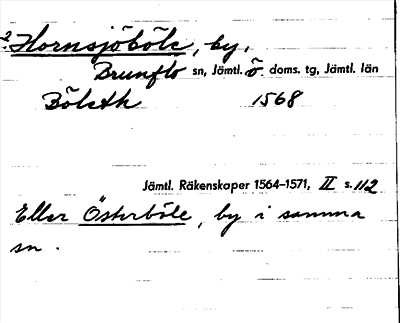 ? Hornsjöböle, by,
Brunflo sn, Jämtl. ö doms. tg, Jämtl. län
Böleth 1568
Jämtl. Räkenskaper 1564–1571, II s. 112
Eller Österböle, by i samma
sn.